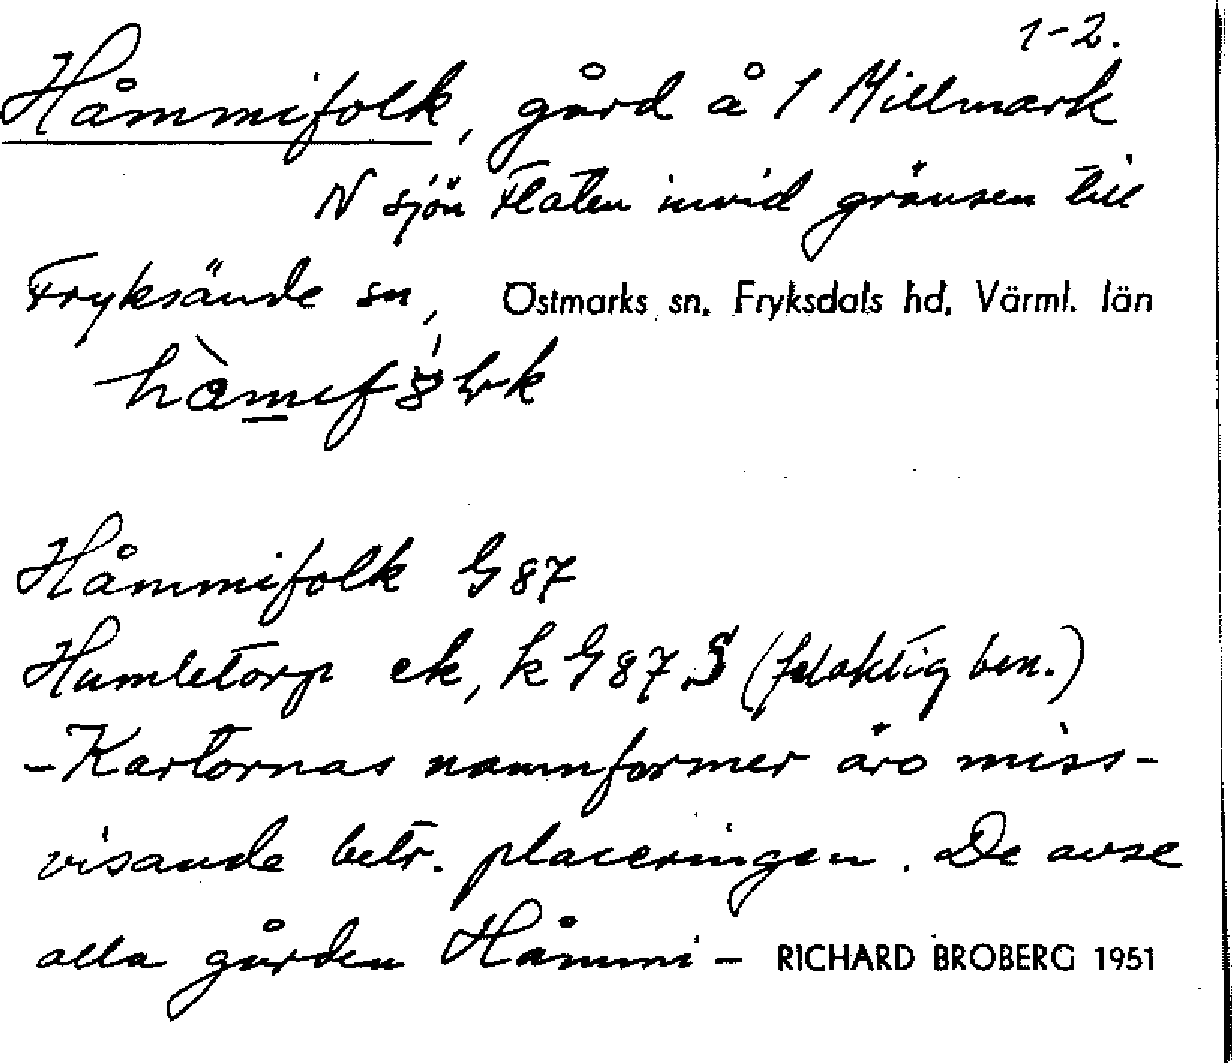 1-2.
Håmmifolk, gård å 1 Millmark
N sjön Flaten invid gränsen till
Fryksände sn, Östmarks sn. Fryksdals hd, Värml. län
Håmmifolk G 87
Humletorp ek, k G 87 S (felaktig ben.)
- Kartornas namnformer äro miss-
visande betr. placeringen. De avse
alla gården Håmmi- RICHARD BROBERG 1951